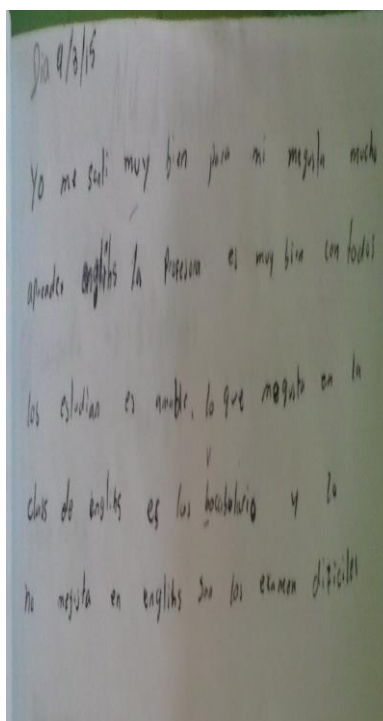 Dia 9/3/15
Yo me senti muy bien para mi megusta mucho
aprender englihs la profesora es muy bien con todos
los estudian es amable, lo que megusta en la
class de englihs es los bocabulario y lo
no megusta en englihs son los examen dificiles